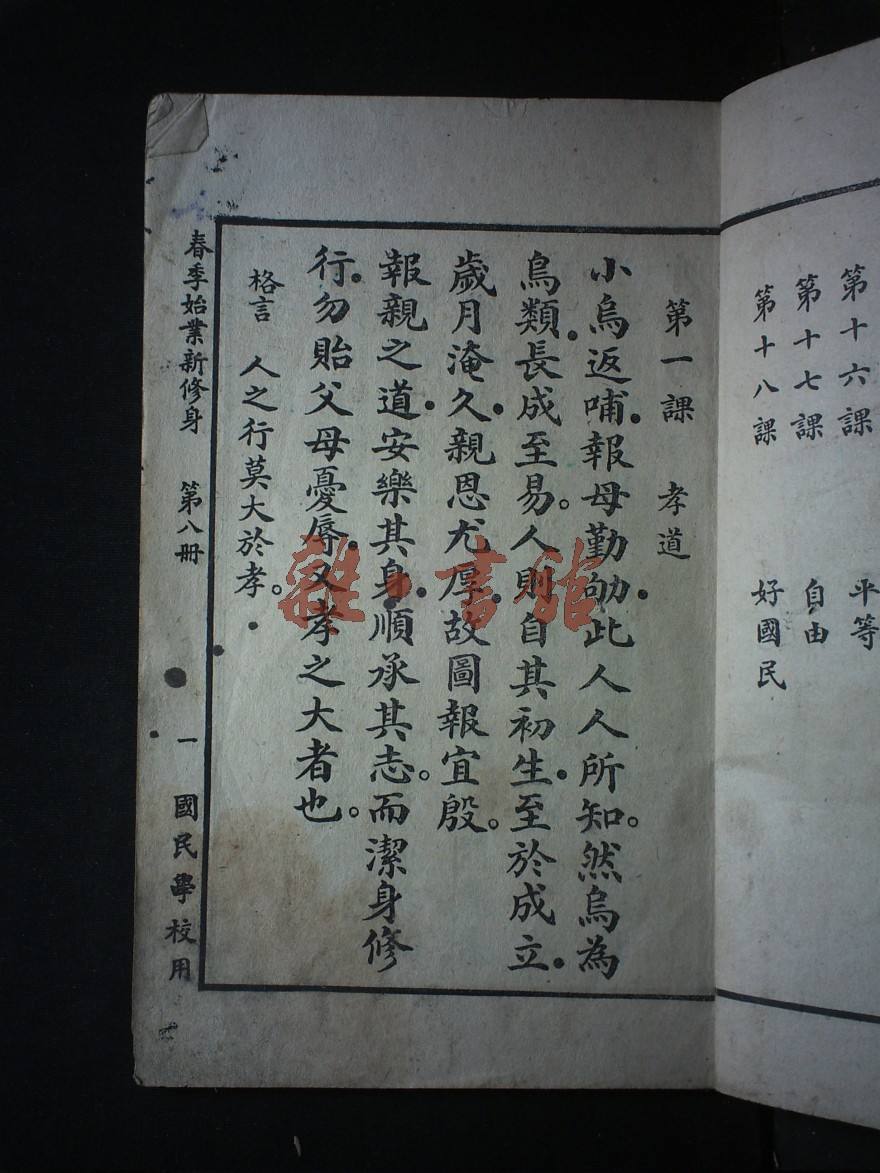 第十六課 平等
第十七課 自由
第十八課 好國民
第一課 孝道
小烏返哺.報母勤劬.此人人所知。然烏為
鳥類.長成至易。人則自其初生.至於成立.
歲月淹久.親恩尤厚.故圖報宜殷。
報親之道.安樂其身.順承其志。而潔身修
行.勿貽父母憂辱.又孝之大者也。
格言 人之行莫大於孝。
春季始業新修身 第八冊 一 國民學校用
雜·書館